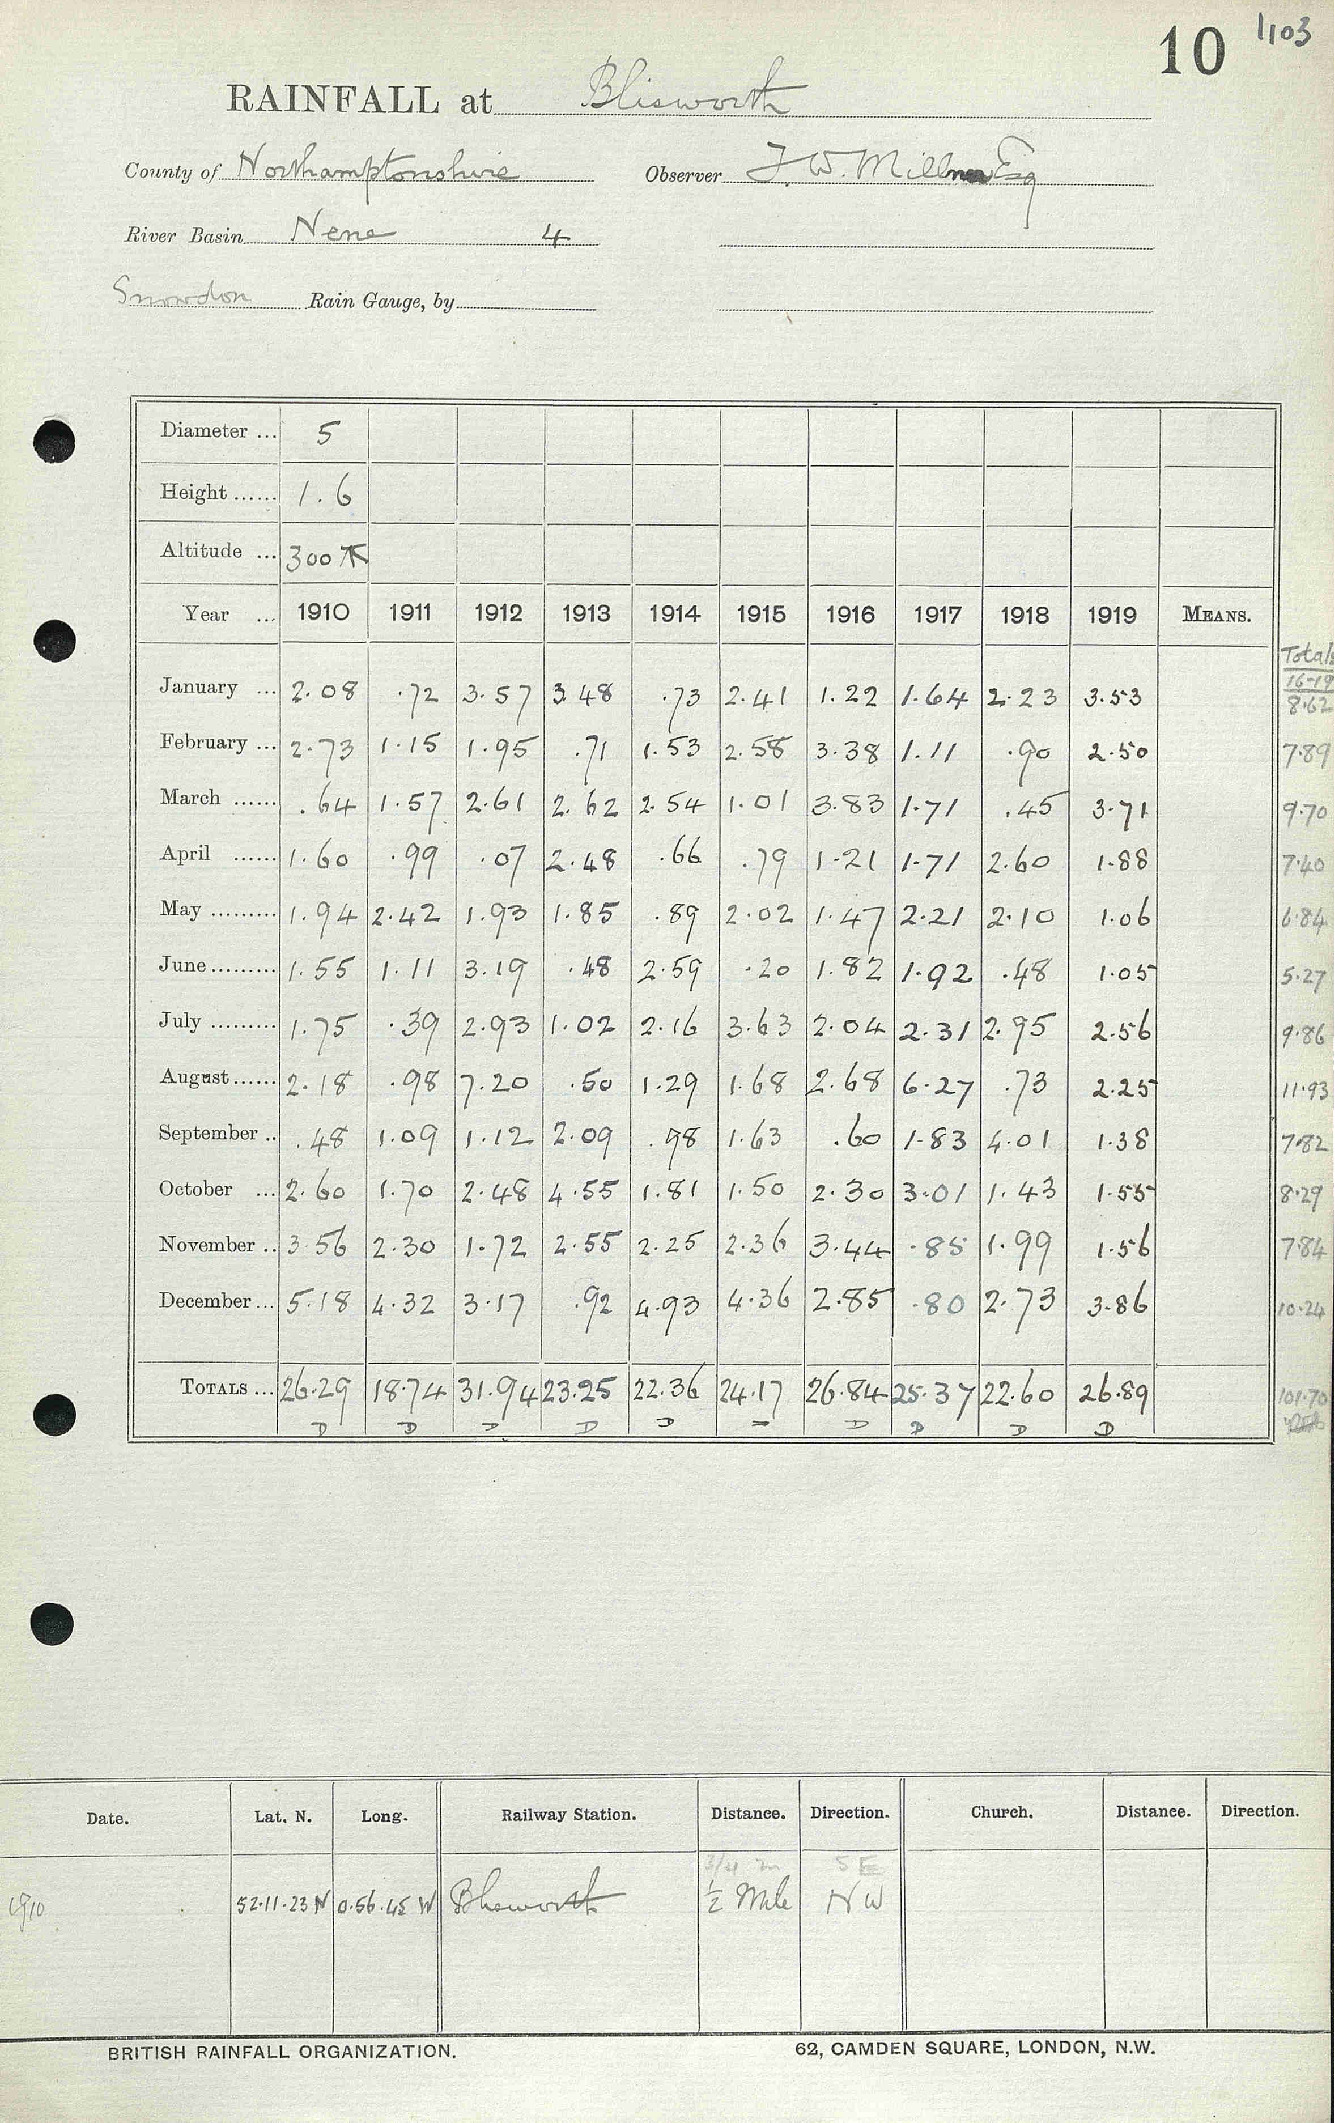 10 1103
RAINFALL at Blisworth
County of Northamptonshire Observer F. W. Millner Esq
River Basin Nene 4
Snowdon Rain Gauge, by
Diameter ... 5
Height ...... 1.6
Altitude ... 300
Year ... 1910 1911 1912 1913 1914 1915 1916 1917 1918 1919 MEANS.
Totals
16-19
January ... 2.08 .72 3.57 3.48 .73 2.41 1.22 1.64 2.23 3.53 8.62
February ... 2.73 1.15 1.95 .71 1.53 2.58 3.38 1.11 .90 2.50 7.89
March ...... .64 1.57 2.61 2.62 2.54 1.01 3.83 1.71 .45 3.71 9.70
April ...... 1.60 .99 .07 2.48 .66 .79 1.21 1.71 2.60 1.88 7.40
May ......... 1.94 2.42 1.93 1.85 .89 2.02 1.47 2.21 2.10 1.06 6.84
June ......... 1.55 1.11 3.19 .48 2.59 .20 1.82 1.92 .48 1.05 5.27
July ......... 1.75 .39 2.93 1.02 2.16 3.63 2.04 2.31 2.95 2.56 9.86
August ...... 2.18 .98 7.20 .50 1.29 1.68 2.68 6.27 .73 2.25 11.93
September .. .48 1.09 1.12 2.09 .98 1.63 .60 1.83 4.01 1.38 7.82
October ... 2.60 1.70 2.48 4.55 1.81 1.50 2.30 3.01 1.43 1.55 8.29
November .. 3.56 2.30 1.72 2.55 2.25 2.36 3.44 .85 1.99 1.56 7.84
December ... 5.18 4.32 3.17 .92 4.93 4.36 2.85 .80 2.73 3.86 10.24
TOTALS ... 26.29 18.74 31.94 23.25 22.36 24.17 26.84 25.37 22.60 26.89 101.70
D D D D D D D D D
Date. Lat. N. Long. Railway Station. Distance. Direction. Church. Distance. Direction.
3/4 m SE
1910 52.11.23 N 0.56.45 W Blisworth 1/2 Mile NW
BRITISH RAINFALL ORGANIZATION. 62, CAMDEN SQUARE, LONDON, N.W.